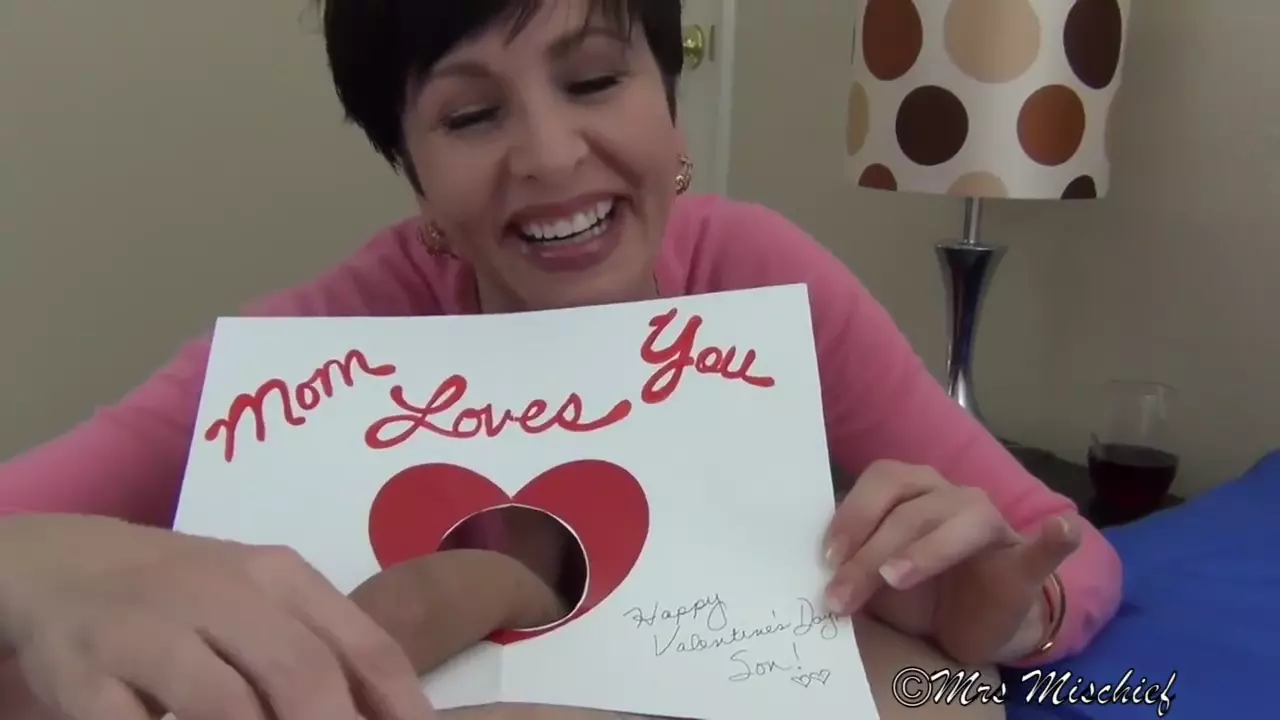 Mom Loves You
Happy
Valentine's Day
Son!
©Mrs Mischief